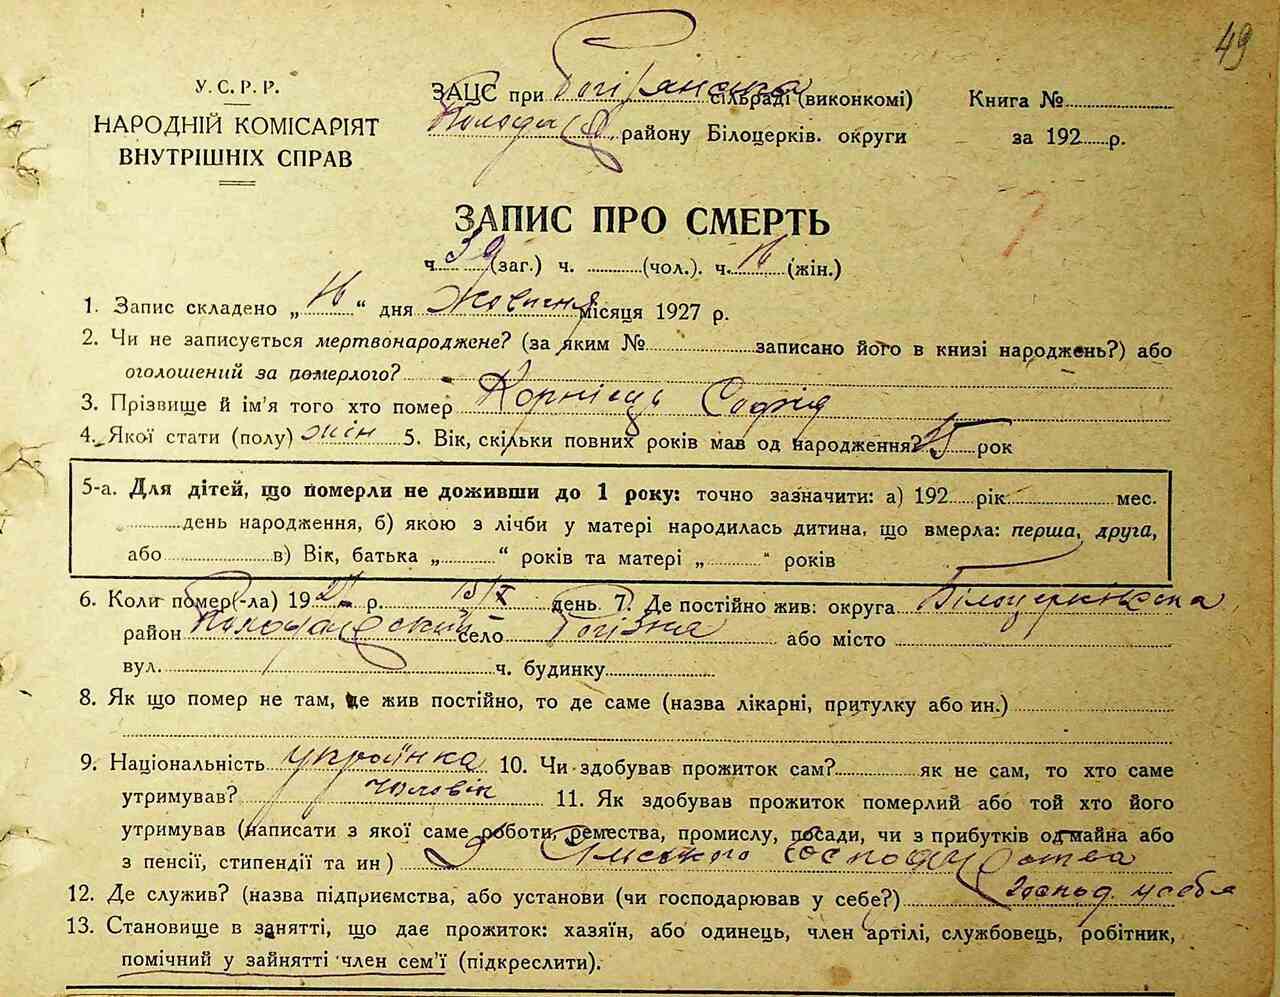 49
У. С. Р. Р.
НАРОДНІЙ КОМІСАРІЯТ
ВНУТРІШНІХ СПРАВ
ЗАЦС при сільраді (виконкомі)
району Білоцерків. округи
Книга №
за 192 р.
ЗАПИС ПРО СМЕРТЬ
ч. 39 (заг.) ч. (чол.). ч. 16 (жін.)
1. Запис складено „ 16 “ дня Жовтня місяця 1927 р.
2. Чи не записується мертвонароджене? (за яким № записано його в книзі народжень?) або
оголошений за померлого?
3. Прізвище й ім'я того хто помер Корнієць Софія
4. Якої стати (полу) жін 5. Вік, скільки повних років мав од народження? 25 рок
5-а. Для дітей, що померли не доживши до 1 року: точно зазначити: а) 192 рік мес.
день народження, б) якою з лічби у матері народилась дитина, що вмерла: перша, друга,
або в) Вік, батька „ “ років та матері „ “ років
6. Коли помер(-ла) 1927 р. 15/X день 7. Де постійно жив: округа Білоцерківська
район село або місто
вул. ч. будинку
8. Як що помер не там, де жив постійно, то де саме (назва лікарні, притулку або ин.)
9. Національність українка 10. Чи здобував прожиток сам? як не сам, то хто саме
утримував? чоловік 11. Як здобував прожиток померлий або той хто його
утримував (написати з якої саме роботи, ремества, промислу, посади, чи з прибутків од майна або
з пенсії, стипендії та ин) З сільського господарства
12. Де служив? (назва підприємства, або установи (чи господарював у себе?) господ. у себе
13. Становище в занятті, що дає прожиток: хазяїн, або одинець, член артілі, службовець, робітник,
помічний у зайнятті член сем'ї (підкреслити).